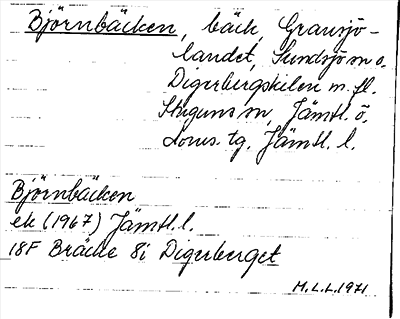 Björnbäcken, bäck, Gransjö-
landet, Sundsjö sn o.
Digerbergskilen m. fl.
Stuguns sn, Jämtl. ö.
doms. tg, Jämtl. l.
Björnbäcken
ek (1967) Jämtl. l.
18F Bräcke 8i Digerberget
M.L.L. 1971